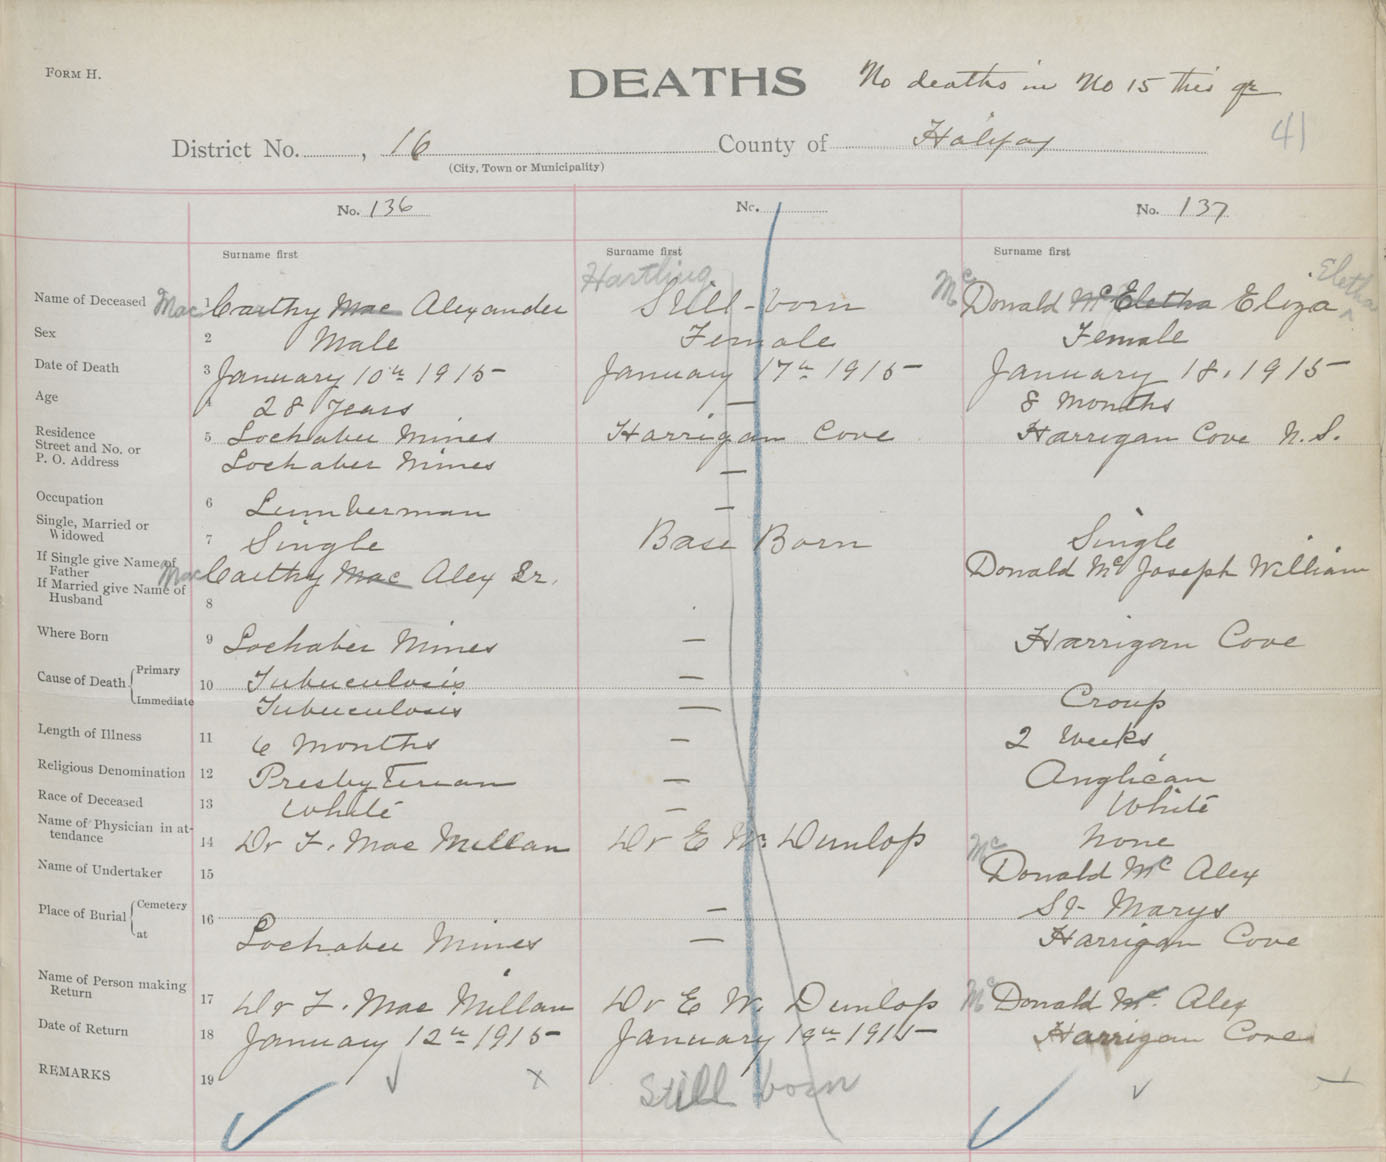 FORM H.
DEATHS No deaths in No 15 this qr
41
District No. , 16 County of Halifax
(City, Town or Municipality)
No. 136 No. No. 137
Surname first Surname first Surname first
Hartling Eletha
Name of Deceased Mac 1 Carthy Mac Alexander Still-born Mc Donald Mc Eletha Eliza
Sex 2 Male Female Female
Date of Death 3 January 10th 1915 January 17th 1915 January 18, 1915
Age 4 28 Years — 8 Months
Residence
Street and No. or
P. O. Address
5 Lochaber Mines Harrigan Cove Harrigan Cove N.S.
Lochaber Mines —
Occupation 6 Lumberman —
Single, Married or
Widowed
7 Single Base Born Single
If Single give Name of
Father
Mac Carthy Mac Alex Sr. Donald Mc Joseph William
If Married give Name of
Husband
8
Where Born 9 Lochaber Mines — Harrigan Cove
Cause of Death Primary 10 Tubuculosis —
Immediate Tubuculosis — Croup
Length of Illness 11 6 Months — 2 Weeks
Religious Denomination 12 Presbyterian — Anglican
Race of Deceased 13 White — White
Name of Physician in at-
tendance
14 Dr F. Mac Millan Dr E W. Dunlop None
Name of Undertaker 15 Mc Donald Mc Alex
Place of Burial Cemetery 16 — St Marys
at Lochaber Mines — Harrigan Cove
Name of Person making
Return
17 Dr F. Mac Millan Dr E W. Dunlop Mc Donald Mc Alex
Date of Return 18 January 12th 1915 January 19th 1915 Harrigan Cove
REMARKS 19 Still born